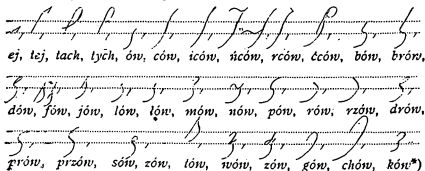 ej, tej, tach, tych, ów, ców, iców, ńców, rców, čców, bów, brów,
dów, fów, jów, lów, łów, mów, nów, pów, rów, rzów, drów,
prów, przów, sów, zów, tów, wów, zów, gów, chów, ków*)